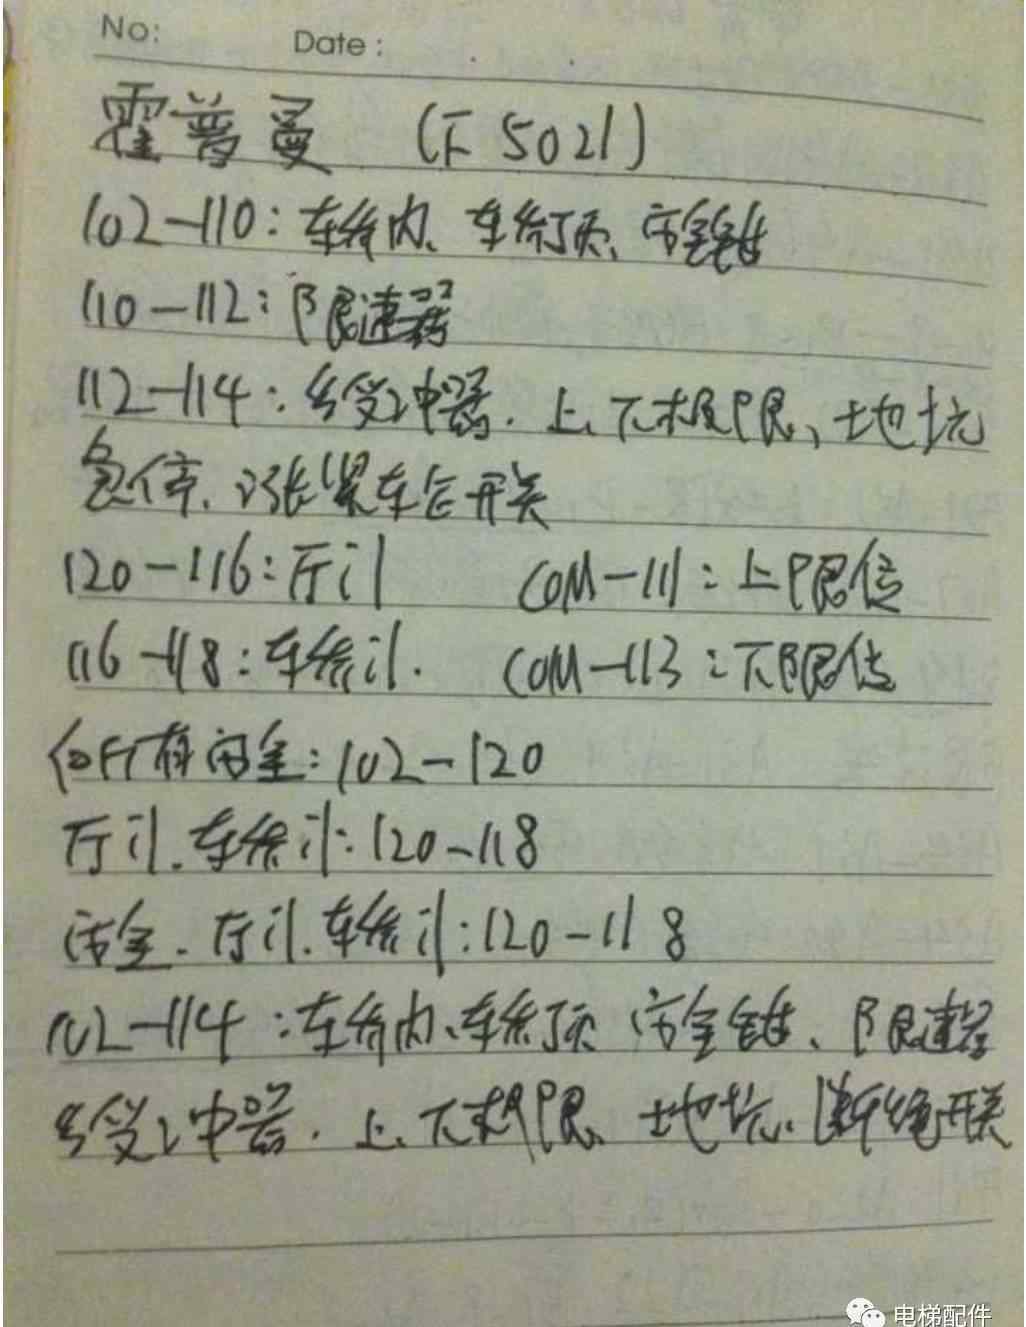 No:
Date:
霍普曼 (F5021)
102-110: 车桥内、车桥顶、安全钳
110-112: 限速器
112-114: 缓冲器. 上、下极限、地坑
急停、涨紧车仑开关
120-116: 厅门 COM-111: 上限位
116-118: 车桥门. COM-113: 下限位
所有安全: 102-120
厅门. 车桥门: 120-118
安全. 厅门. 车桥门: 120-118
102-114: 车桥内、车桥顶 安全钳、限速器
缓冲器. 上、下极限、地坑、断绳开关
电梯配件